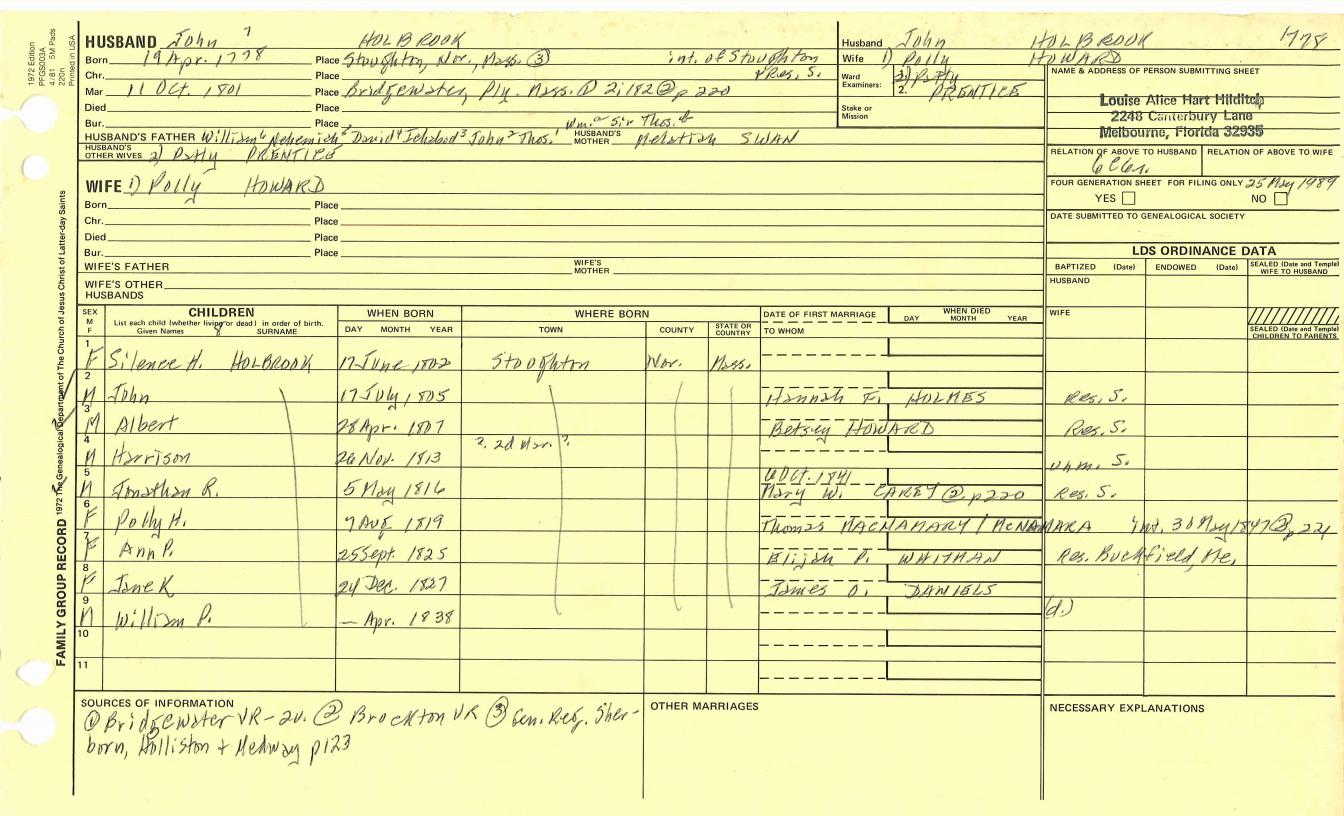 1972 Edition
PFGS003A
4/81 5M Pads
220n
Printed in USA
HUSBAND John 7 HOLBROOK
Born 19 Apr. 1778 Place Stoughton, Nor., Mass. ③ int. of Stoughton
Chr. Place Res. S.
Mar 11 Oct. 1801 Place Bridgewater, Ply. Mass. ① 2; 182 ② p 220
Died Place
Bur. Place Wm. Sir Thos.
HUSBAND'S FATHER William 6 Nehemiah 5 David 4 Ichabod 3 John 2 Thos. 1 HUSBAND'S MOTHER Melatiah SWAN
HUSBAND'S OTHER WIVES 2) Patty PRENTICE
WIFE 1) Polly HOWARD
Born Place
Chr. Place
Died Place
Bur. Place
WIFE'S FATHER WIFE'S MOTHER
WIFE'S OTHER HUSBANDS
Husband John HOLBROOK 1778
Wife 1) Polly HOWARD
Ward Examiners: 1. 2) Patty
2. PRENTICE
Stake or Mission
NAME & ADDRESS OF PERSON SUBMITTING SHEET
Louise Alice Hart Hilditch
2248 Canterbury Lane
Melbourne, Florida 32935
RELATION OF ABOVE TO HUSBAND RELATION OF ABOVE TO WIFE
FOUR GENERATION SHEET FOR FILING ONLY 25 May 1989
YES NO
DATE SUBMITTED TO GENEALOGICAL SOCIETY
LDS ORDINANCE DATA
BAPTIZED (Date) ENDOWED (Date) SEALED (Date and Temple) WIFE TO HUSBAND
HUSBAND
WIFE
SEALED (Date and Temple) CHILDREN TO PARENTS
SEX M F CHILDREN WHEN BORN WHERE BORN DATE OF FIRST MARRIAGE WHEN DIED
List each child (whether living or dead) in order of birth.
Given Names SURNAME DAY MONTH YEAR TOWN COUNTY STATE OR COUNTRY TO WHOM DAY MONTH YEAR
1 F Silence H. HOLBROOK 17 June 1802 Stoughton Nor. Mass.
2 M John 17 July 1805 Hannah F. HOLMES Res. S.
3 M Albert 28 Apr. 1807 Betsey HOWARD Res. S.
4 M Harrison 26 Nov. 1813 ?. 2d Mar. ?. unm. S.
5 M Jonathan R. 5 May 1816 6 Oct. 1841 Mary W. CAREY ② p 220 Res. S.
6 F Polly H. 7 Aug 1819 Thomas MACNAMARY / McNAMARA int. 30 May 1847 ② p 224
7 F Ann P. 25 Sept. 1825 Elijah P. WHITMAN Res. Buckfield, Me.
8 F Jane K 24 Dec. 1827 James O. DANIELS
9 M William P. — Apr. 1838 (d.)
10
11
SOURCES OF INFORMATION
① Bridgewater VR-2v. ② Brockton VR ③ Gen. Reg. Sher-
born, Holliston + Medway p123
OTHER MARRIAGES
NECESSARY EXPLANATIONS
FAMILY GROUP RECORD 1972 The Genealogical Department of The Church of Jesus Christ of Latter-day Saints